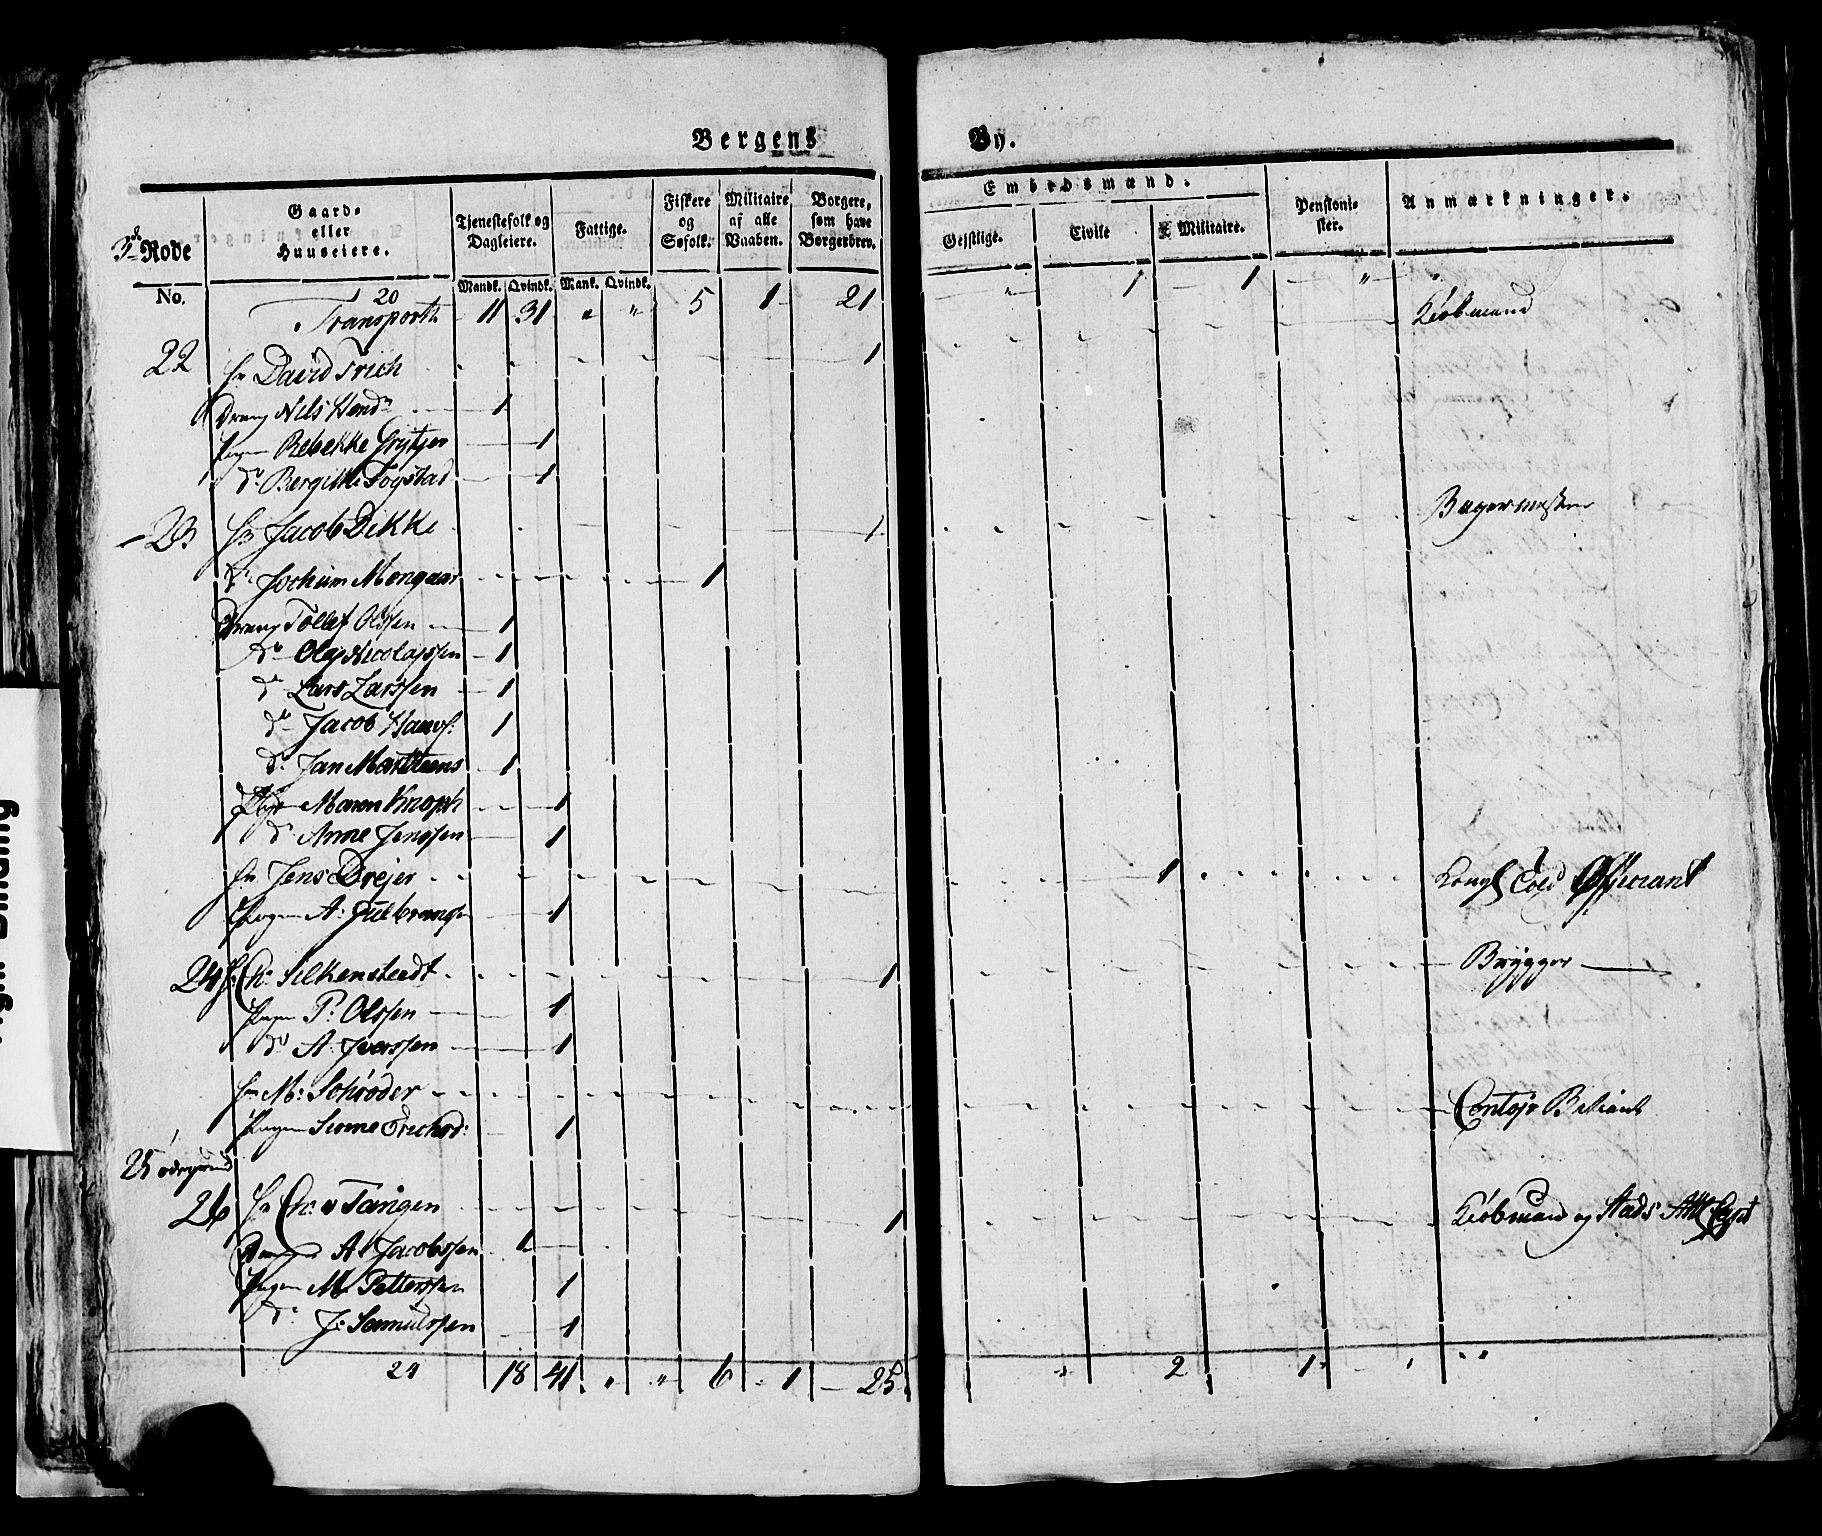 Bergens By.
3de Rode
No.
Gaard- eller Huuseiere.
Tjenestefolk og Dagleiere.
Mandk. Qvindk.
Fattige.
Mank. Qvindk.
Fiskere og Søfolk.
Militaire af alle Vaaben.
Borgere, som have Borgerbrev.
Embedsmænd.
Gejstlige.
Civile
Militaire.
Pensionister.
Anmærkninger.
20
Transporth 11 31 " " 5 1 21 " 1 1 " "
22 Hr David Frich 1 Kiøbmand
Dreng Nils Hend 1
Pigen Rebekke Grytjer 1
do Bergitte Fogstad 1
23 Hr Jacob Dekke 1 Bagermester
do Jochum Mongaar 1
Dreng Tollef Olssen 1
do Olaj Nicolajssen 1
do Lars Larssen 1
do Jacob Hansf: 1
do Jan Marthens 1
Pige Maren Knoph 1
do Anne Jenssen 1
Hr Jens Drejer 1 Kongl Told Officiant
Pigen A: Gulbrands 1
24 Hr Ch: Silkensteadt 1 Brygger
Pigen P: Olssen 1
do A: Iverssen 1
Hr M: Schrøder Contojr Betient
Pigen Sirene Erichsd: 1
25 ødegrund
26 Hr Ch: v Tangen 1 Kiøbmand og Stads Capt
Dreng A: Jacobssen 1
Pigen M: Petterssen 1
do J: Samuelssen 1
24 18 41 " " 6 1 25 " 2 1 " " "